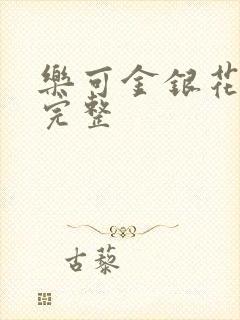 樂可金銀花
完整
古藜